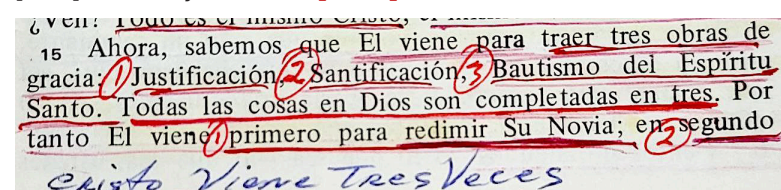 ¿Ven? Todo es el mismo Cristo, el
15 Ahora, sabemos que El viene para traer tres obras de
gracia: 1 Justificación, 2 Santificación, 3 Bautismo del Espíritu
Santo. Todas las cosas en Dios son completadas en tres. Por
tanto El viene 1 primero para redimir Su Novia; en 2 segundo
Cristo Viene Tres Veces